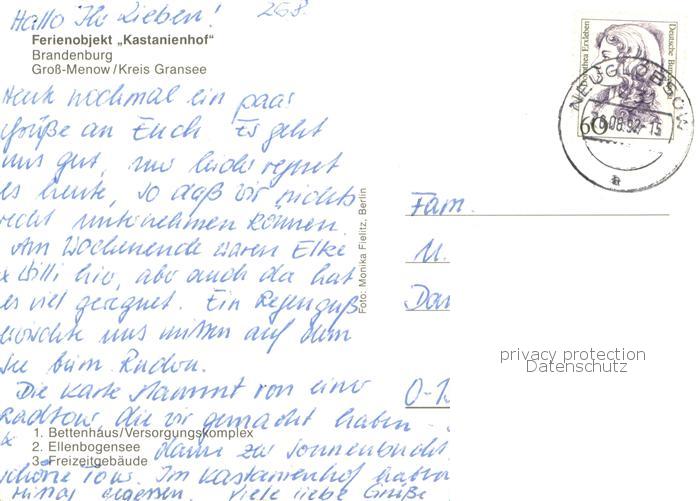 Hallo Ihr Lieben! 26.8.
Ferienobjekt „Kastanienhof"
Brandenburg
Groß-Menow/Kreis Gransee
Heute nochmal ein paar
Grüße an Euch. Es geht
uns gut, nur leider regnet
es heute, so daß wir nichts
recht unternehmen können.
Am Wochenende waren Elke
& Willi hier, aber auch da hat
es viel geregnet. Ein Regenguß
erwischte uns mitten auf dem
See beim Rudern.
Die Karte stammt von einer
Radtour, die wir gemacht haben
1. Bettenhäus/Versorgungskomplex
2. Ellenbogensee
3. Freizeitgebäude
schöne Tour. Im Kastanienhof haben
gegessen. Viele liebe Grüße
Foto: Monika Fielitz, Berlin
Dorothea Erxleben
Deutsche Bundespost
60
NEUGLOBSOW
26.08.92-15
a
Fam.
U.
O-1
privacy protection
Datenschutz